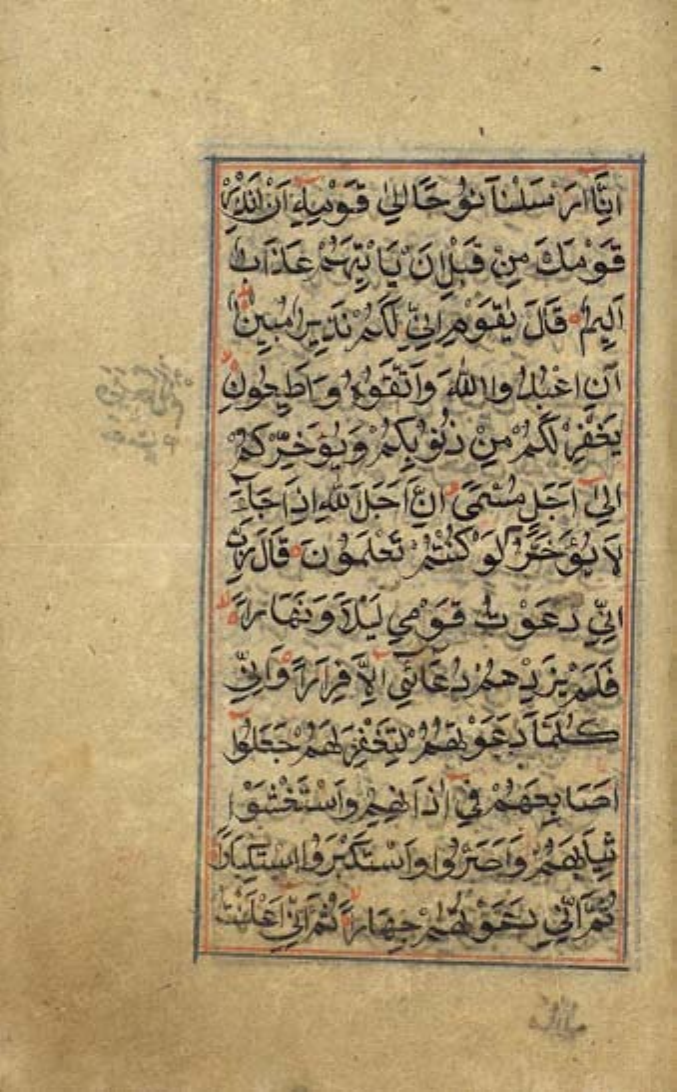 اِنَّا اَرْسَلْنَا نُوْحًا اِلٰي قَوْمِهٖٓ اَنْ اَنْذِرْ
قَوْمَكَ مِنْ قَبْلِ اَنْ يَاْتِيَهُمْ عَذَابٌ
اَلِيْمٌ قَالَ يٰقَوْمِ اِنِّيْ لَكُمْ نَذِيْرٌ مُّبِيْنٌ
اَنِ اعْبُدُوا اللّٰهَ وَاتَّقُوْهُ وَاَطِيْعُوْنِ
يَغْفِرْ لَكُمْ مِنْ ذُنُوْبِكُمْ وَيُؤَخِّرْكُمْ
اِلٰي اَجَلٍ مُّسَمًّى اِنَّ اَجَلَ اللّٰهِ اِذَا جَآءَ
لَا يُؤَخَّرُ لَوْ كُنْتُمْ تَعْلَمُوْنَ قَالَ رَبِّ
اِنِّيْ دَعَوْتُ قَوْمِيْ لَيْلًا وَّنَهَارًا
فَلَمْ يَزِدْهُمْ دُعَآئِيْ اِلَّا فِرَارًا وَاِنِّيْ
كُلَّمَا دَعَوْتُهُمْ لِتَغْفِرَ لَهُمْ جَعَلُوْا
اَصَابِعَهُمْ فِيْ اٰذَانِهِمْ وَاسْتَغْشَوْا
ثِيَابَهُمْ وَاَصَرُّوْا وَاسْتَكْبَرُوا اسْتِكْبَارًا
ثُمَّ اِنِّيْ دَعَوْتُهُمْ جِهَارًا ثُمَّ اِنِّيْ اَعْلَنْتُ